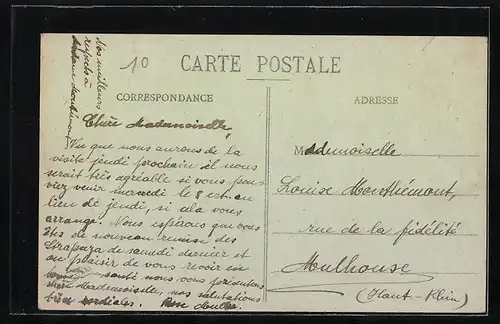 10
CARTE POSTALE
CORRESPONDANCE
ADRESSE
Nos meilleurs
respects à
Madame
Chère Mademoiselle,
Vu que nous aurons de la
visite jeudi prochain il nous
serait très agréable si vous pou-
viez venir mercredi le 8 crt. au
lieu de jeudi, si cela vous
arrange. Nous espérons que vous
êtes de nouveau remise des
Strapaza de samedi dernier et
au plaisir de vous revoir en
bonne santé nous vous présentons
chère Mademoiselle, nos salutations
bien cordiales.
Mademoiselle
Louise Monthémont,
rue de la fidélité
Mulhouse
(Haut-Rhin)